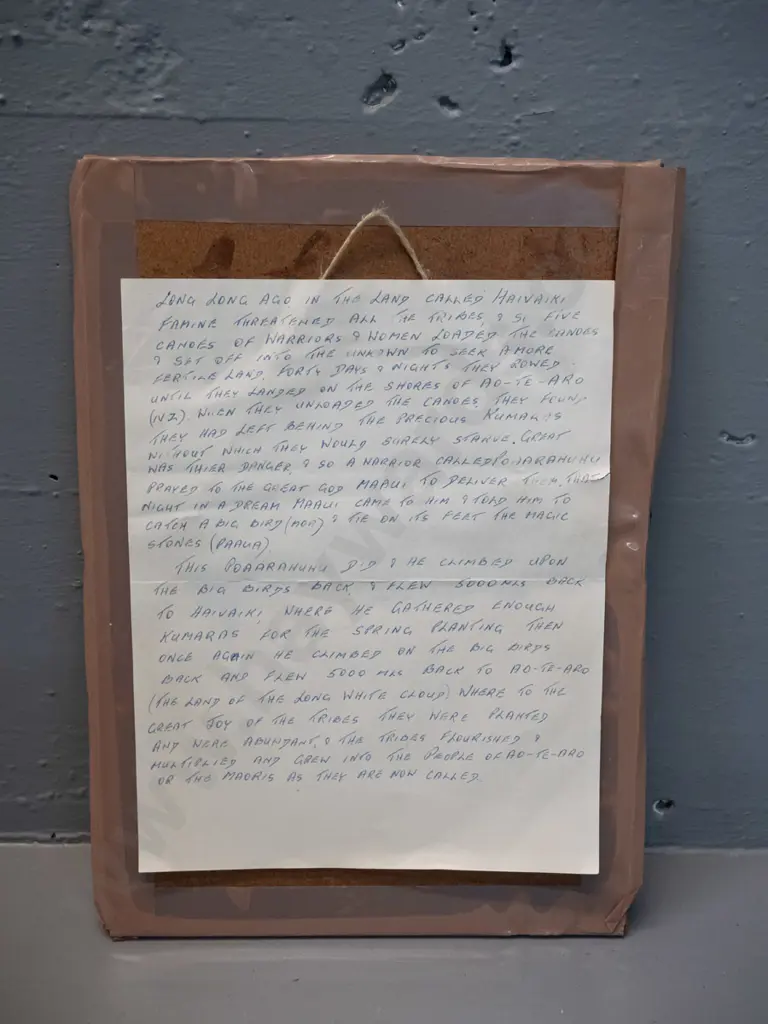 LONG LONG AGO IN THE LAND CALLED HAIVAIKI
FAMINE THREATENED ALL THE TRIBES, & SO FIVE
CANOES OF WARRIORS & WOMEN LOADED THE CANOES
& SET OFF INTO THE UNKOWN TO SEEK A MORE
FERTILE LAND. FORTY DAYS & NIGHTS THEY ROWED
UNTIL THEY LANDED ON THE SHORES OF AO-TE-ARO
(N Z). WHEN THEY UNLOADED THE CANOES THEY FOUND
THEY HAD LEFT BEHIND THE PRECIOUS KUMARAS
WITHOUT WHICH THEY WOULD SURELY STARVE. GREAT
WAS THIER DANGER, & SO A WARRIOR CALLED POAARAHUHU
PRAYED TO THE GREAT GOD MAAUI TO DELIVER THEM, THAT
NIGHT IN A DREAM MAAUI CAME TO HIM & TOLD HIM TO
CATCH A BIG BIRD (MOA) & TIE ON ITS FEET THE MAGIC
STONES (PAAUA)
THIS POAARAHUHU DID & HE CLIMBED UPON
THE BIG BIRDS BACK & FLEW 5000 MLS BACK
TO HAIVAIKI, WHERE HE GATHERED ENOUGH
KUMARAS FOR THE SPRING PLANTING THEN
ONCE AGAIN HE CLIMBED ON THE BIG BIRDS
BACK AND FLEW 5000 MLS BACK TO AO-TE-ARO
(THE LAND OF THE LONG WHITE CLOUD) WHERE TO THE
GREAT JOY OF THE TRIBES THEY WERE PLANTED
AND WERE ABUNDANT, & THE TRIBES FLOURISHED &
MULTIPLIED AND GREW INTO THE PEOPLE OF AO-TE-ARO
OR THE MAORIS AS THEY ARE NOW CALLED.